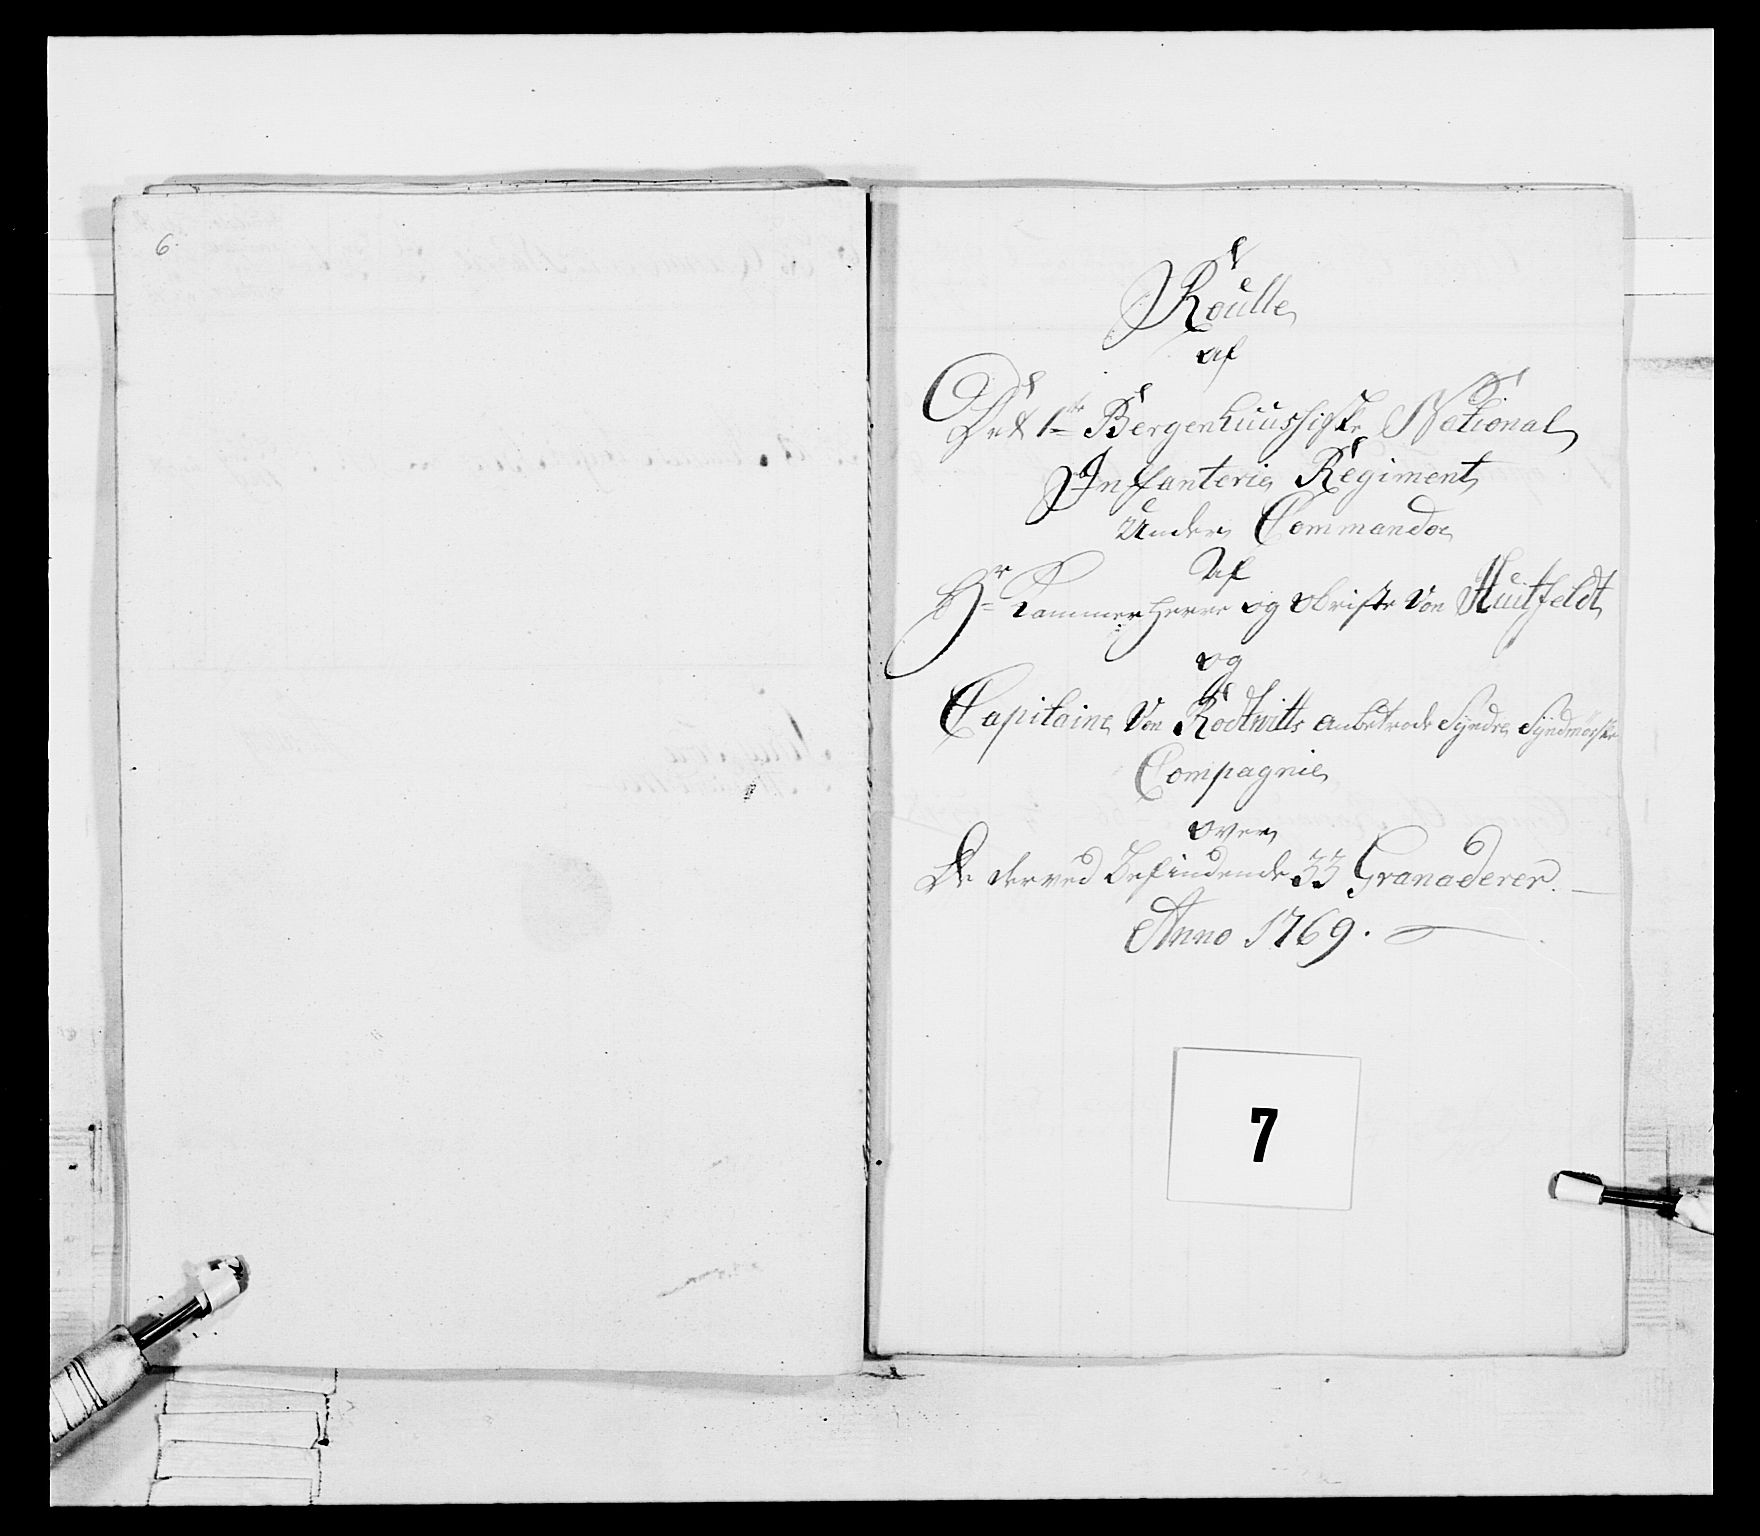 6.
Roulle
af
Det 1te Bergenhuussiske National
Infanterie Regiment
Under Commando
Af
Hr Kammerherre og Obriste Von Huitfeldt
og
Capitaine Von Rodtwitts anbetroede Syndre Syndmörske
Compagnie
over
De derved Befindende 33 Granaderer.
Anno 1769.
7